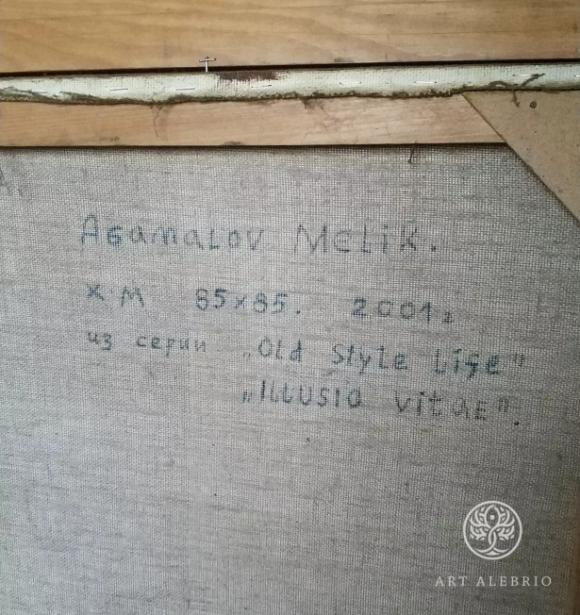 Agamalov Melik.
х м 85x85. 2001г
из серии „Old Style Life"
„ILLUSIO vitaE".
ART ALEBRIO